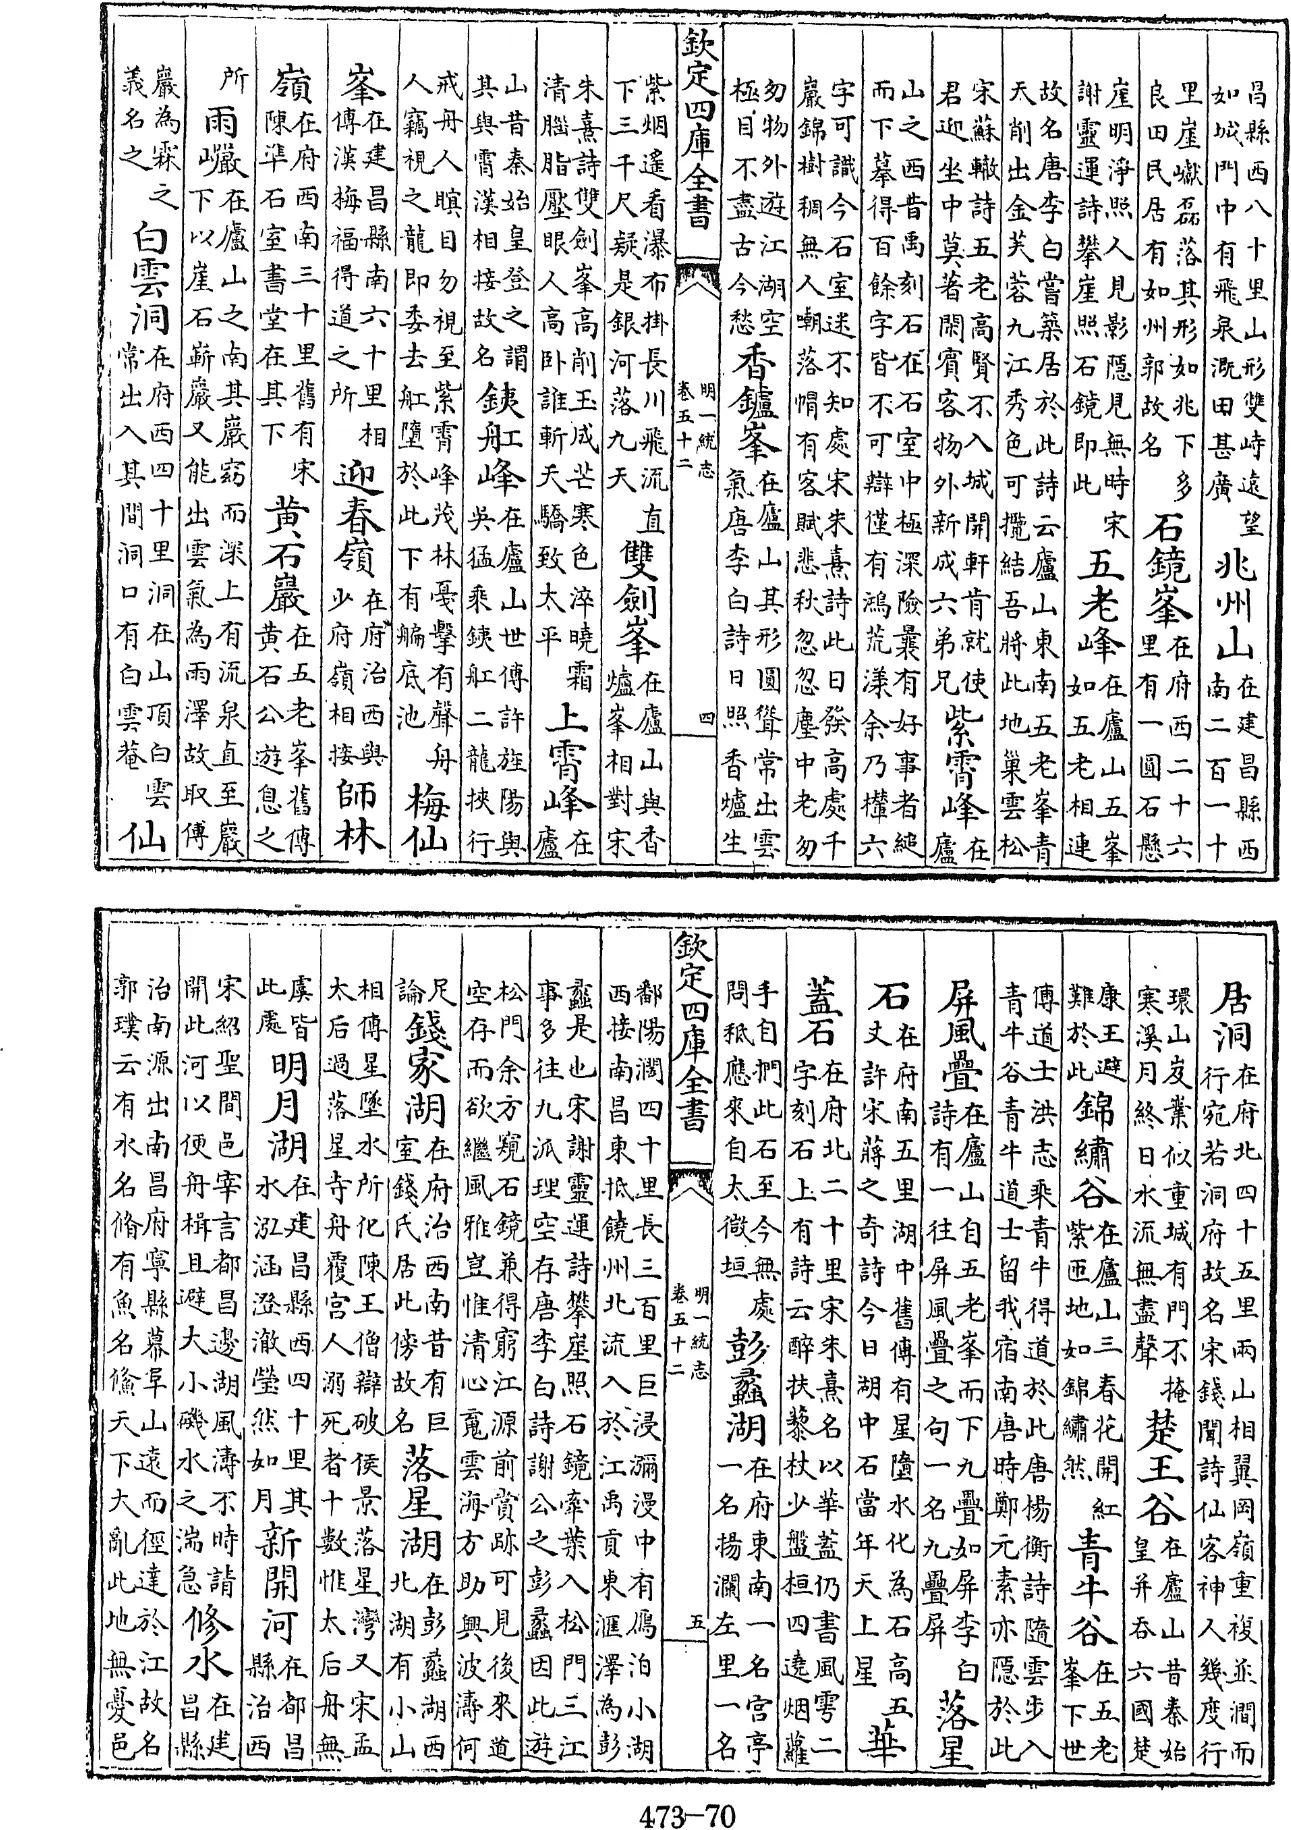 昌縣西八十里山形雙峙遠望
如城門中有飛泉溉田甚廣
兆州山
在建昌縣西
南二百一十
里崖巘磊落其形如兆下多
良田民居有如州郭故名
石鏡峯
在府西二十六
里有一圓石懸
崖明淨照人見影隱見無時宋
謝靈運詩攀崖照石鏡即此
五老峰
在廬山五峯
如五老相連
故名唐李白嘗築居於此詩云廬山東南五老峯青
天削出金芙蓉九江秀色可攬結吾將此地巢雲松
宋蘇轍詩五老高賢不入城開軒肯就使
君迎坐中莫著閑賓客物外新成六弟兄
紫霄峰
在
廬
山之西昔禹刻石在石室中極深險曩有好事者縋
而下摹得百餘字皆不可辯僅有鴻荒漾余乃欅六
字可識今石室迷不知處宋朱熹詩此日發高處千
巖錦樹稠無人嘲落帽有客賦悲秋忽忽塵中老勿
勿物外遊江湖空
極目不盡古今愁
香鑪峯
在廬山其形圓聳常出雲
氣唐李白詩日照香爐生
欽定四庫全書
明一統志
卷五十二
四
紫烟遙看瀑布掛長川飛流直
下三千尺疑是銀河落九天
雙劍峯
在廬山與香
爐峯相對宋
朱熹詩雙劍峯高削玉成芒寒色淬曉霜
清腦脂壓眼人高卧誰斬天驕致太平
上霄峰
在
廬
山昔秦始皇登之謂
其與霄漢相接故名
鐵舡峰
在廬山世傳許旌陽與
吳猛乘鐵舡二龍挾行
戒舟人瞑目勿視至紫霄峰茂林戛擊有聲舟
人竊視之龍即委去舡墮於此下有艑底池
梅仙
峯
在建昌縣南六十里相
傳漢梅福得道之所
迎春嶺
在府治西與
少府嶺相接
師林
嶺
在府西南三十里舊有宋
陳準石室書堂在其下
黄石巖
在五老峯舊傳
黄石公遊息之
所
雨巖
在廬山之南其巖窈而深上有流泉直至巖
下以崖石嶄巖又能出雲氣為雨澤故取傅
巖為霖之
義名之
白雲洞
在府西四十里洞在山頂白雲
常出入其間洞口有白雲菴
仙
居洞
在府北四十五里兩山相翼岡嶺重複並澗而
行宛若洞府故名宋錢聞詩仙客神人幾度行
環山岌業似重城有門不掩
寒溪月終日水流無盡聲
楚王谷
在廬山昔秦始
皇并吞六國楚
康王避
難於此
錦繡谷
在廬山三春花開紅
紫匝地如錦繡然
青牛谷
在五老
峯下世
傳道士洪志乘青牛得道於此唐楊衡詩隨雲步入
青牛谷青牛道士留我宿南唐時鄭元素亦隱於此
屏風疊
在廬山自五老峯而下九疊如屏李白
詩有一往屏風疊之句一名九疊屏
落星
石
在府南五里湖中舊傳有星墮水化為石高五
丈許宋蔣之奇詩今日湖中石當年天上星
華
蓋石
在府北二十里宋朱熹名以華蓋仍書風雩二
字刻石上有詩云醉扶藜杖少盤桓四遶烟蘿
手自捫此石至今無處
問秪應來自太微垣
彭蠡湖
在府東南一名宫亭
一名揚瀾左里一名
欽定四庫全書
明一統志
卷五十二
五
鄱陽濶四十里長三百里巨浸瀰漫中有鴈泊小湖
西接南昌東抵饒州北流入於江禹貢東滙澤為彭
蠡是也宋謝靈運詩攀崖照石鏡牽葉入松門三江
事多往九派理空存唐李白詩謝公之彭蠡因此遊
松門余方窺石鏡兼得窮江源前賞跡可見後來道
空存而欲繼風雅豈惟清心䰟雲海方助興波濤何
足
論
錢家湖
在府治西南昔有巨
室錢氏居此傍故名
落星湖
在彭蠡湖西
北湖有小山
相傳星墜水所化陳王僧辯破侯景落星灣又宋孟
太后過落星寺舟覆宫人溺死者十數惟太后舟無
虞皆
此處
明月湖
在建昌縣西四十里其
水泓涵澄澈瑩然如月
新開河
在都昌
縣治西
宋紹聖間邑宰言都昌邊湖風濤不時請
開此河以便舟楫且避大小磯水之湍急
修水
在建
昌縣
治南源出南昌府寧縣幕阜山遠而徑達於江故名
郭璞云有水名脩有魚名鯈天下大亂此地無憂邑
473-70